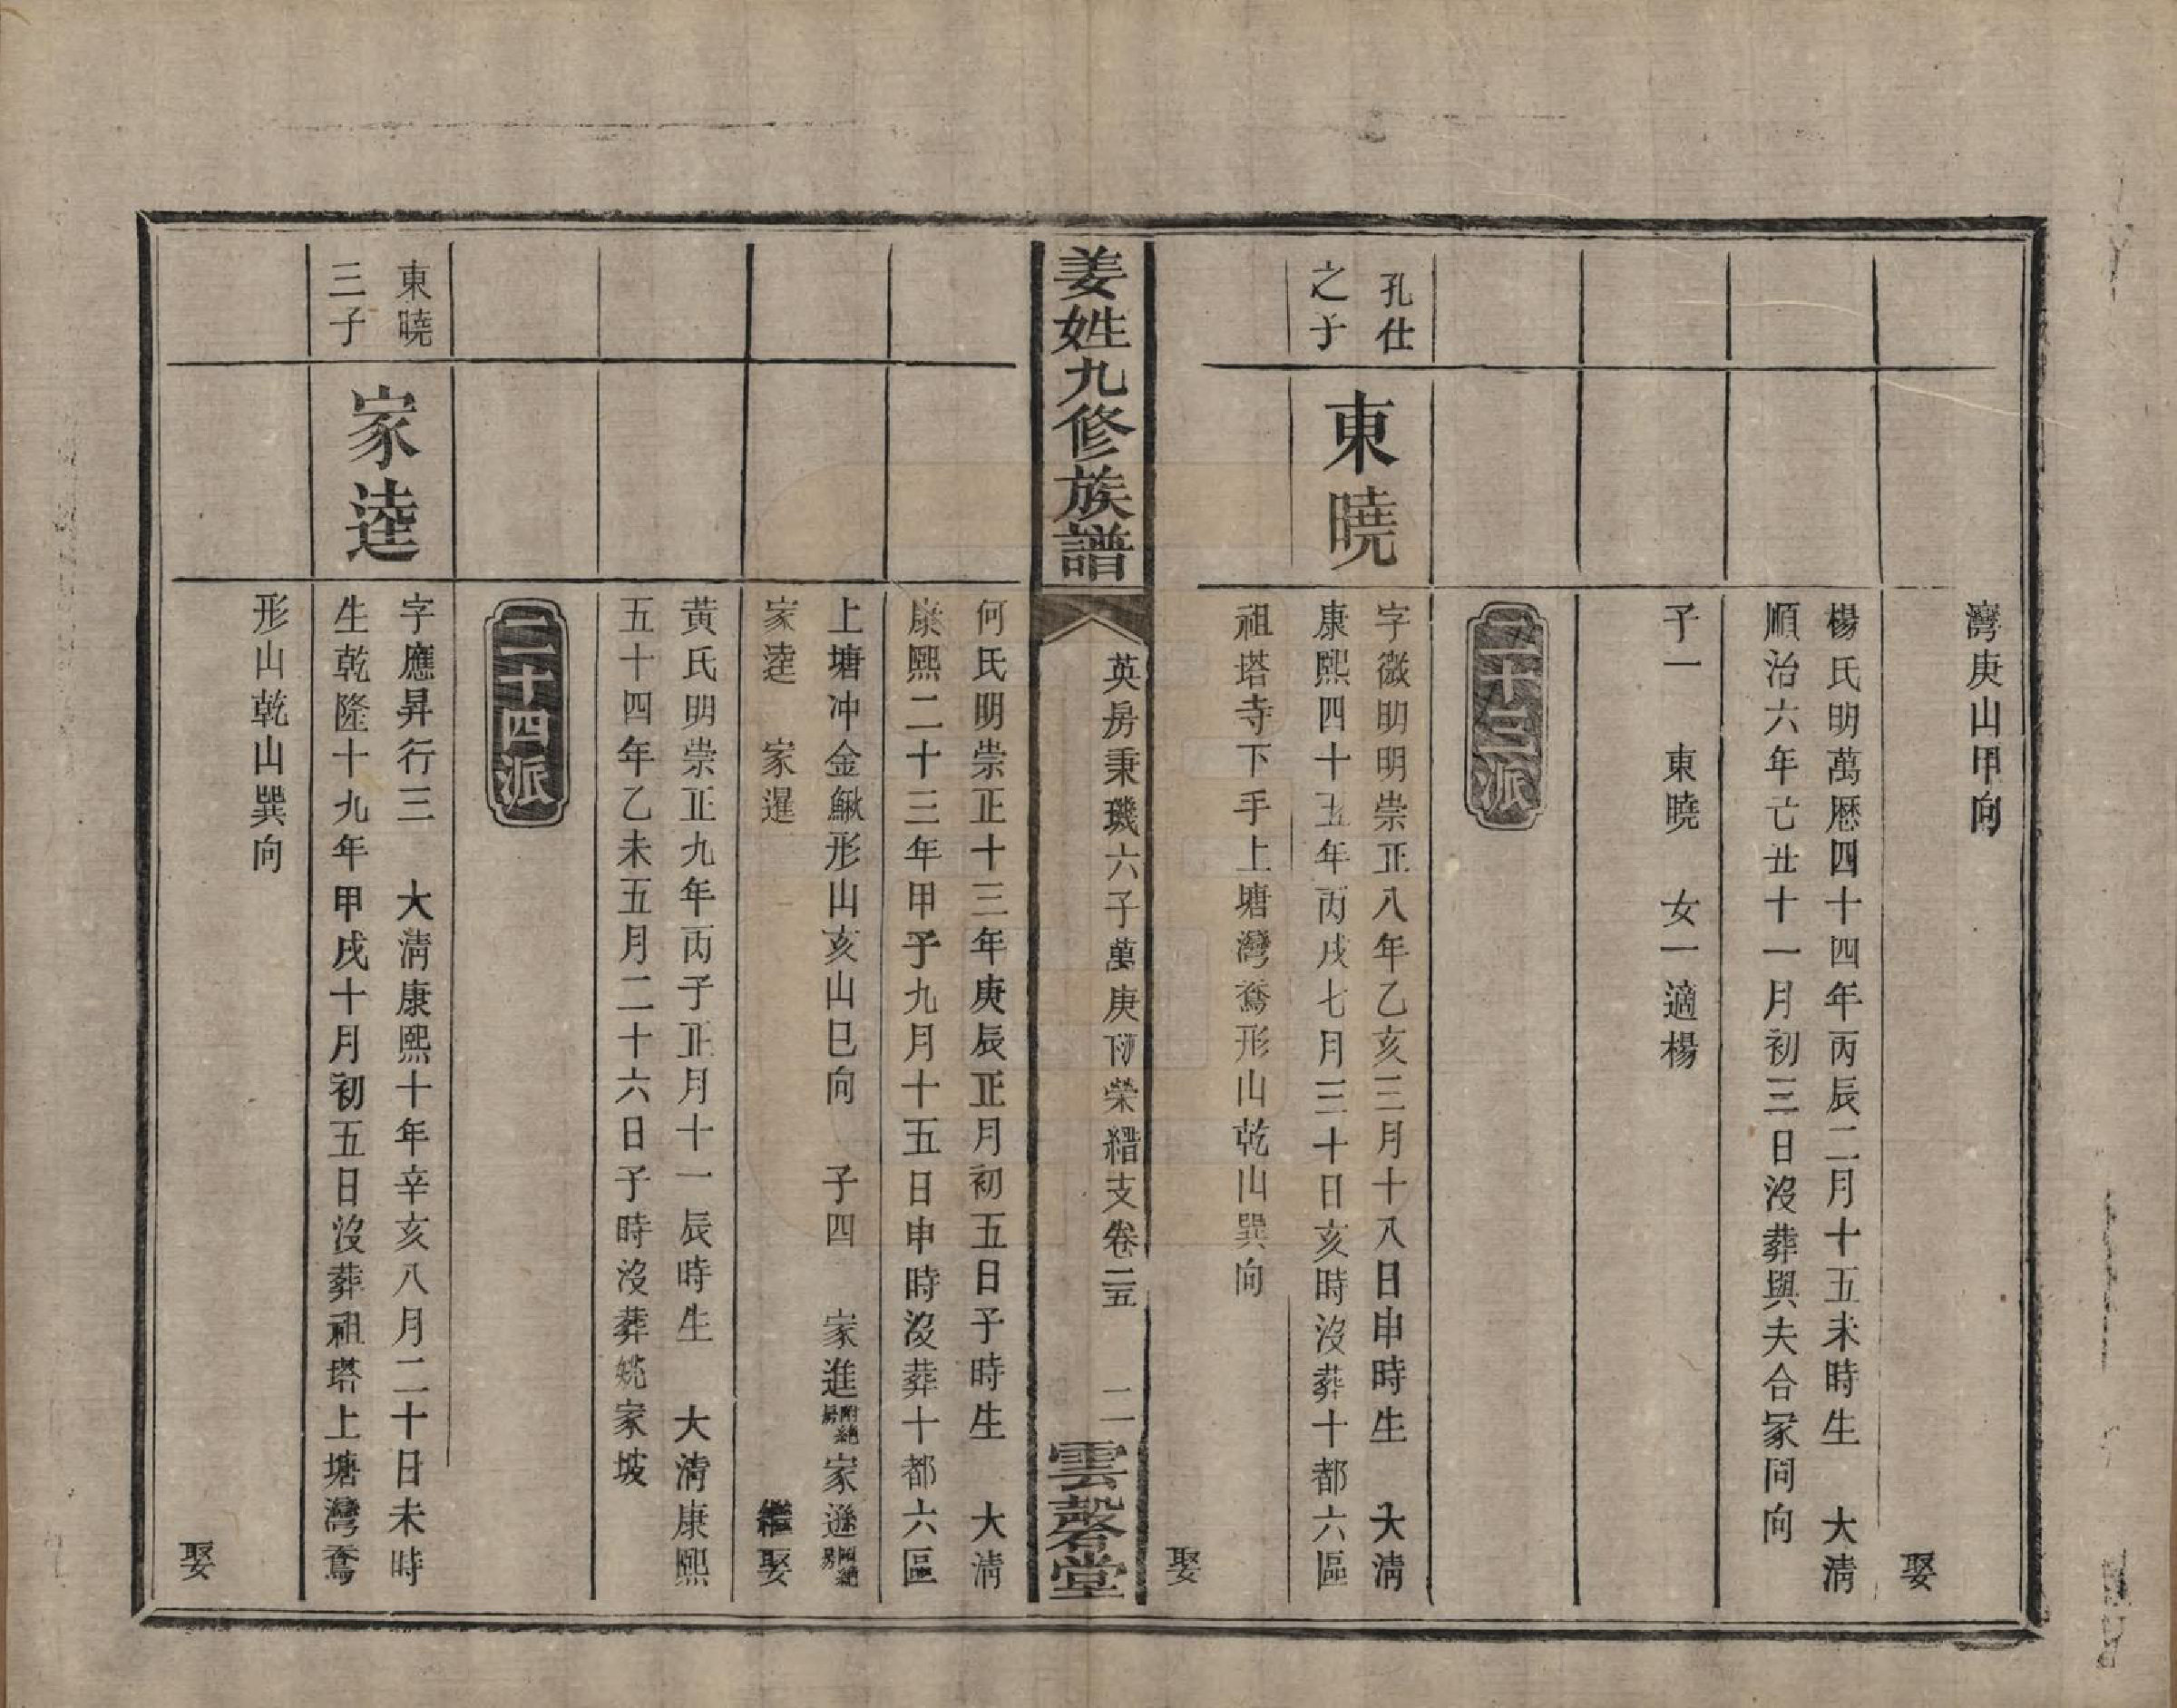 灣庚山甲向
娶
楊氏明萬歷四十四年丙辰二月十五未時生 大清
順治六年亡廿十一月初三日沒葬與夫合冢同向
子一 東曉 女一適楊
二十三派
孔仕
之子
東曉
字微明明崇正八年乙亥三月十八日申時生 大清
康熙四十五年丙戌七月三十日亥時沒葬十都六區
祖塔寺下手上塘灣鴦形山乾山巽向
娶
姜姓九修族譜
英房秉璣六子萬庚榮縉支卷二五
二一
雲磬堂
何氏明崇正十三年庚辰正月初五日子時生 大清
康熙二十三年甲子九月十五日申時沒葬十都六區
上塘冲金鰍形山亥山巳向 子四 家進家遜
家逵 家暹 繼娶
黃氏明崇正九年丙子正月十一辰時生 大清康熙
五十四年乙未五月二十六日子時沒葬姚家坡
二十四派
東曉
三子
家逵
字應昇行三 大清康熙十年辛亥八月二十日未時
生乾隆十九年甲戌十月初五日沒葬祖塔上塘灣鴦
形山乾山巽向
娶